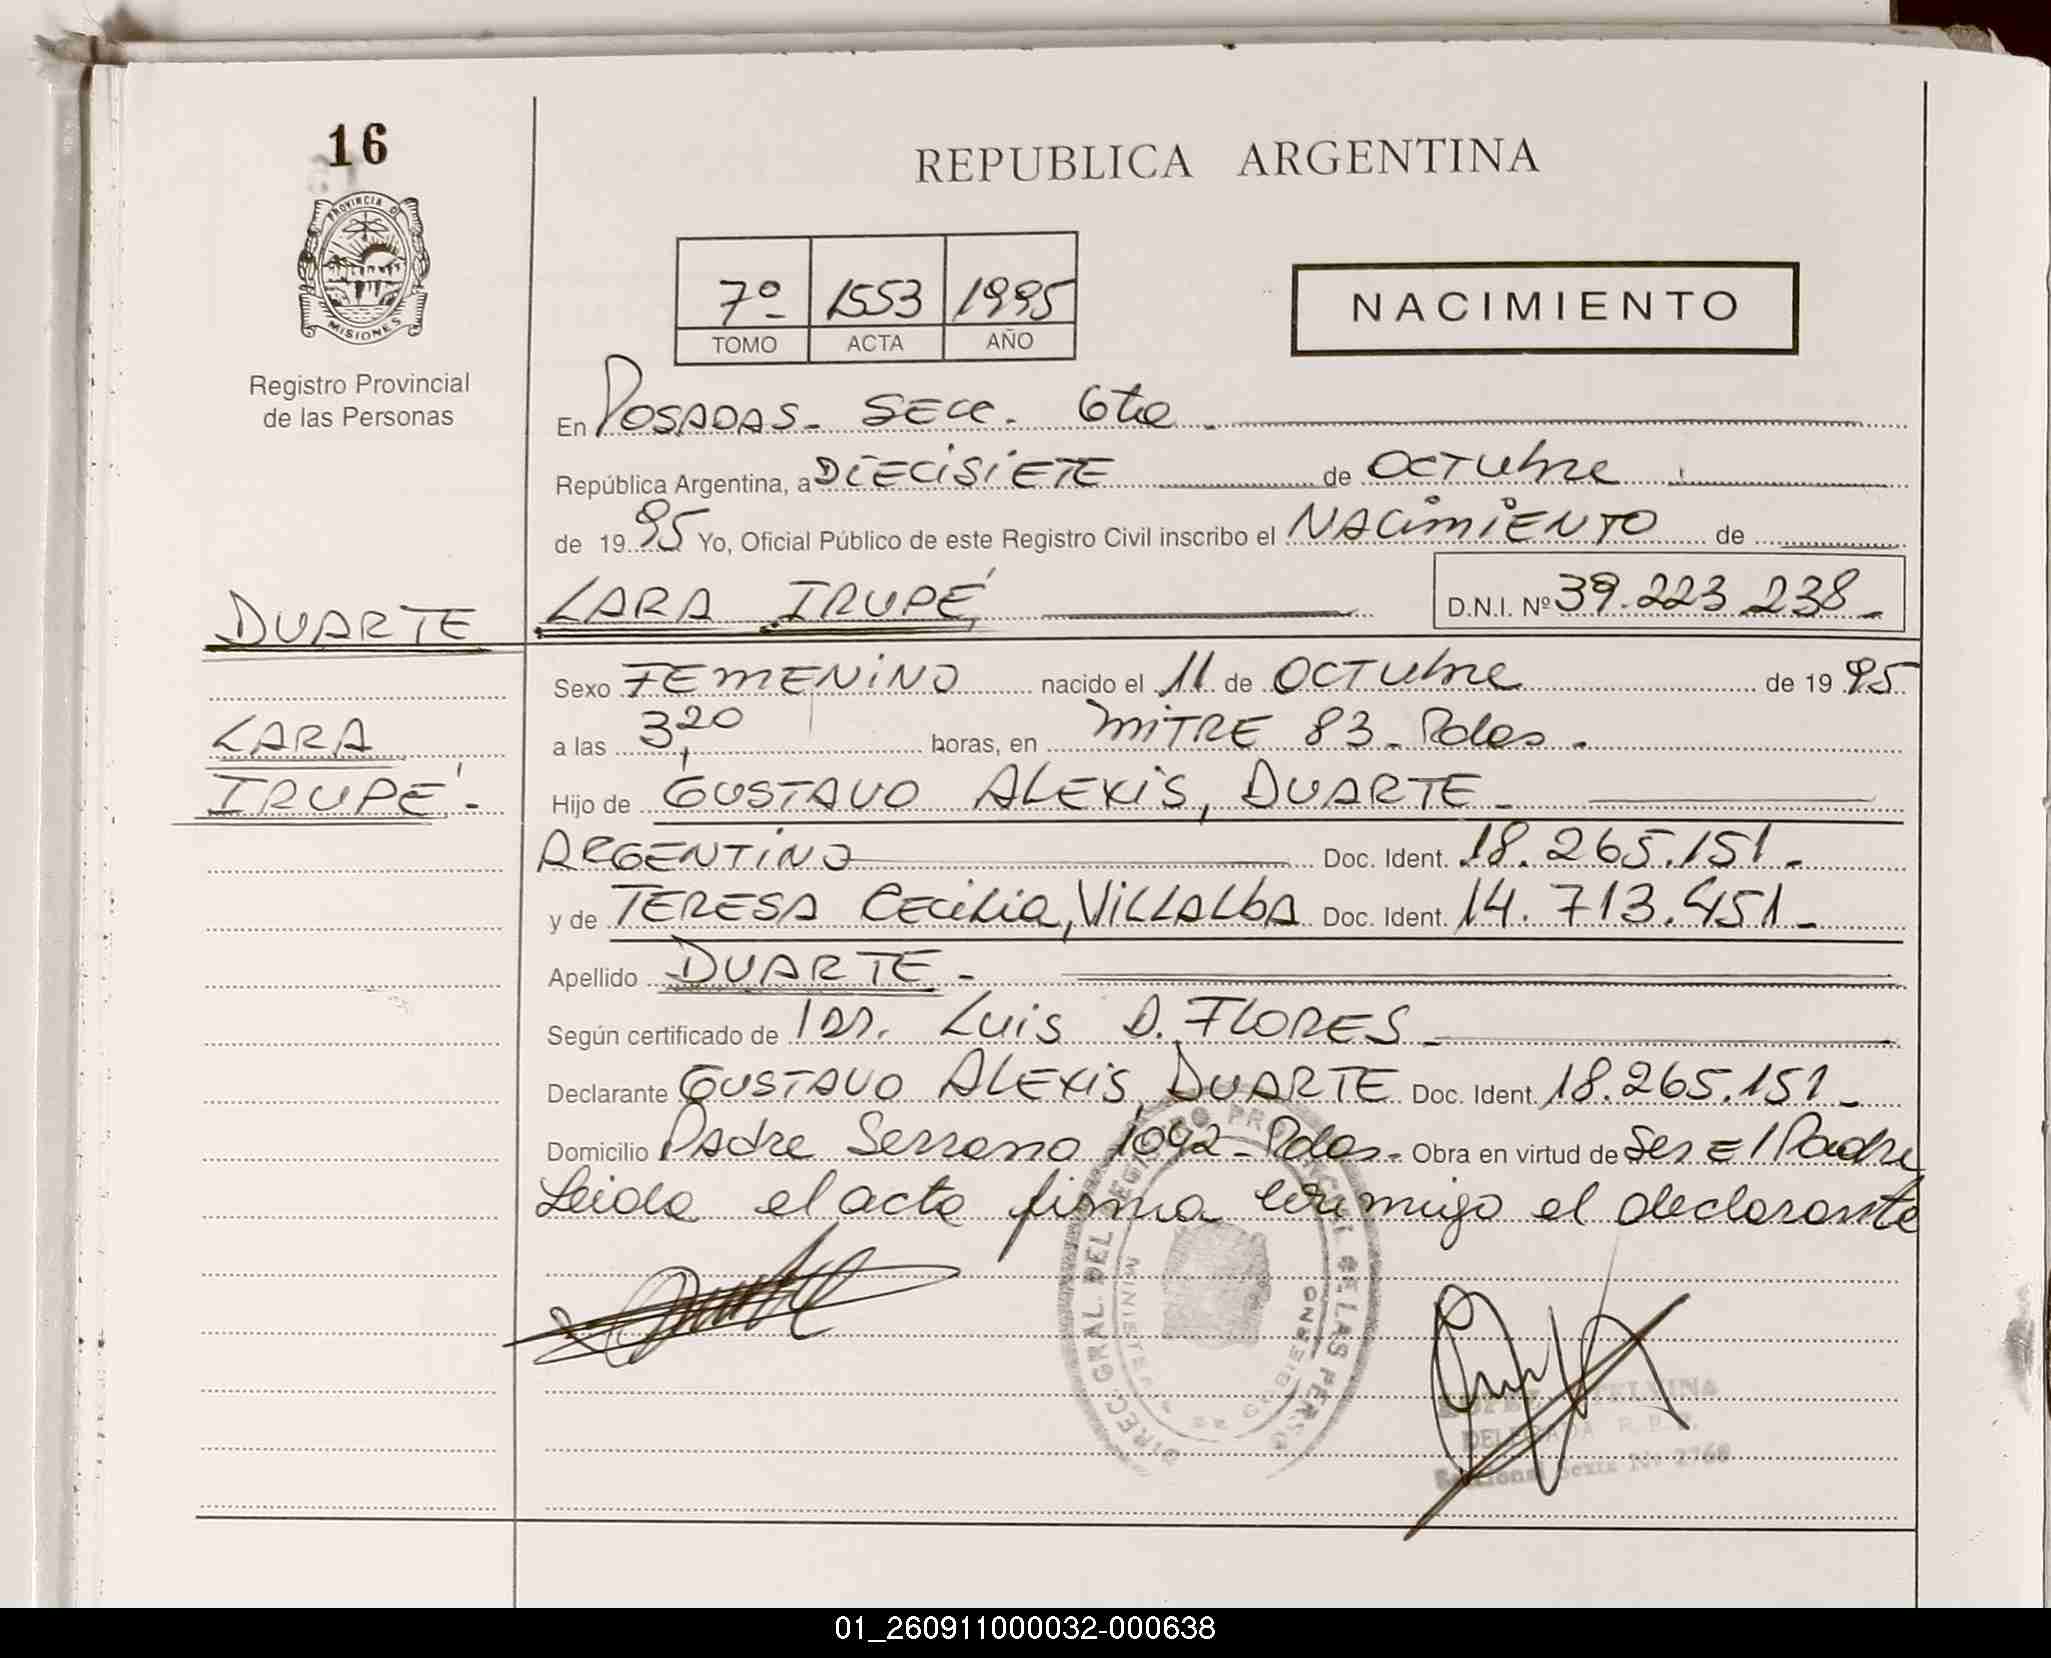 16
PROVINCIA D
MISIONES
Registro Provincial
de las Personas
REPUBLICA ARGENTINA
7º 1553 1995
TOMO ACTA AÑO
NACIMIENTO
En POSADAS. SECC. 6ta.
República Argentina, a DIECISIETE de OCTUbre
de 1995 Yo, Oficial Público de este Registro Civil inscribo el NACimiENTO de
DUARTE LARA IRUPÉ D.N.I. Nº 39.223.238.
Sexo FEMENINO nacido el 11 de OCTUbre de 1995
LARA a las 3,20 horas, en MITRE 83. Pdas.
IRUPÉ. Hijo de GUSTAVO ALEXIS, DUARTE.
ARGENTINO Doc. Ident. 18.265.151.
y de TERESA CeciLia, VILLALbA Doc. Ident. 14.713.451.
Apellido DUARTE.
Según certificado de Dr. Luis D. FLORES.
Declarante GUSTAVO ALEXIS, DUARTE Doc. Ident. 18.265.151.
Domicilio Padre Serrano 1092 - Pdas. Obra en virtud de Ser El Padre
Leida el acta firma conmigo el declarante
DIREC. GRAL. DEL REGISTRO PROVINCIAL DE LAS PERSO
MINISTE DE GOBIERNO
DELEGADA R.P.P.
Seccional Sexta Nº 2768
01_260911000032-000638